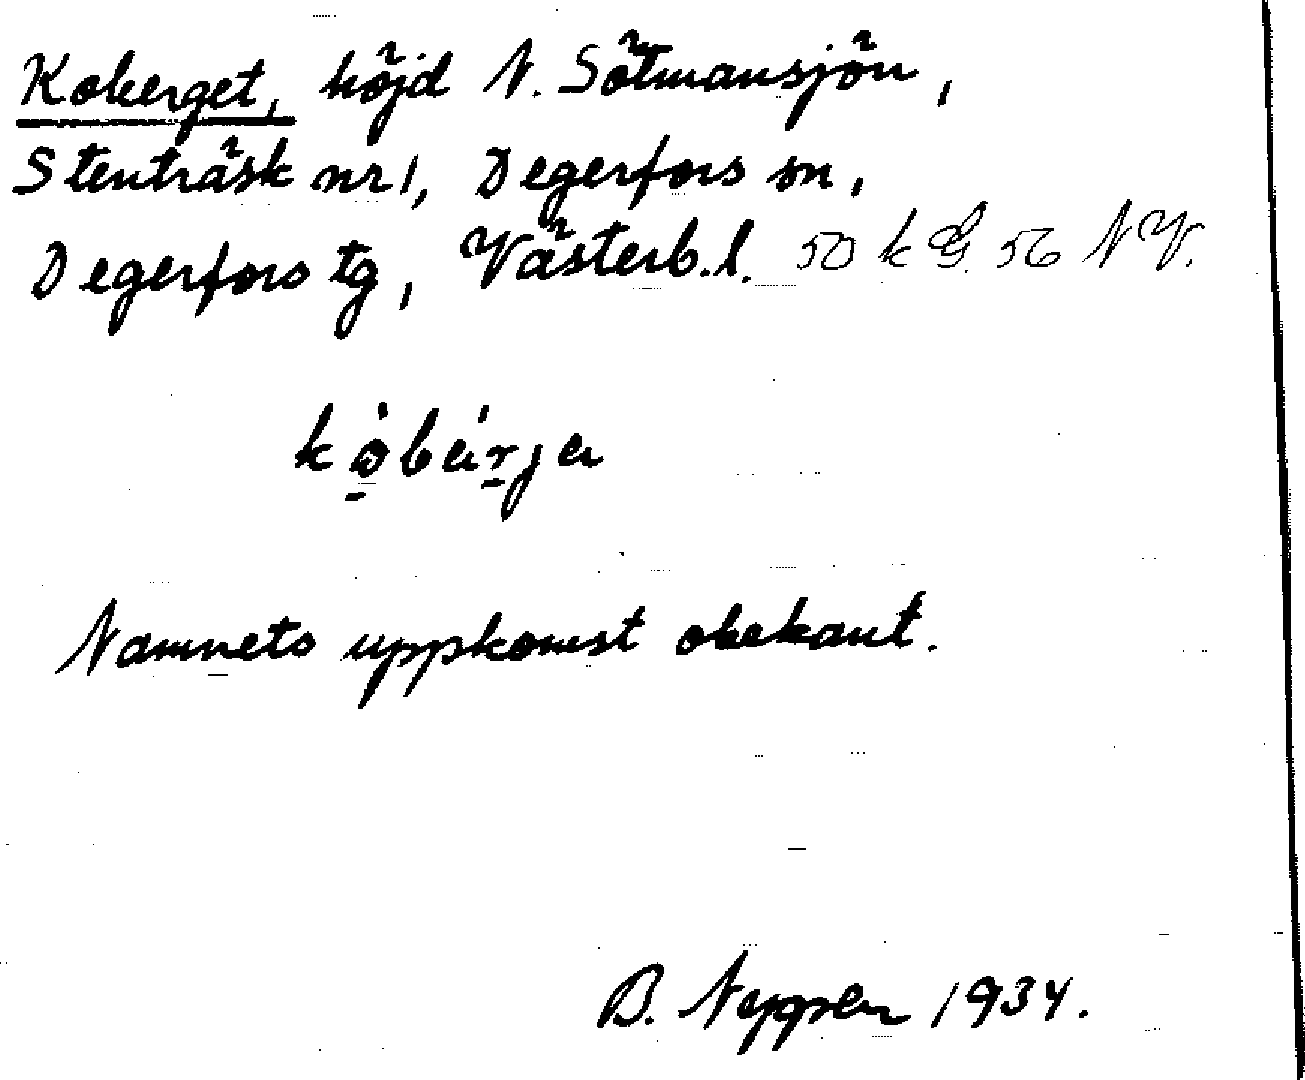 Koberget, höjd N. Sötmansjön,
Stenträsk nr 1, Degerfors sn,
Degerfors tg, Västerb.l. 50 k G. 56 NV.
Namnets uppkomst obekant.
B. 1934.